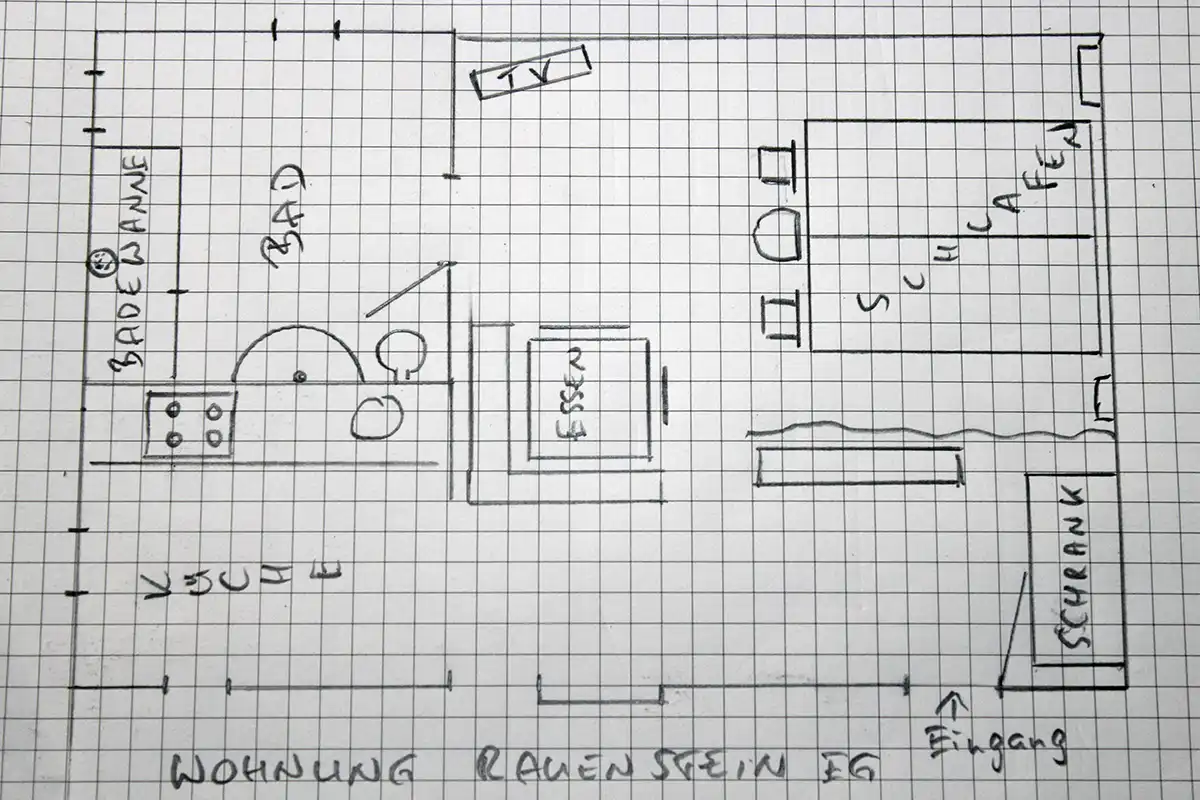 TV
BADEWANNE
BAD
SCHLAFEN
ESSEN
KÜCHE
SCHRANK
Eingang
WOHNUNG RAUENSTEIN EG